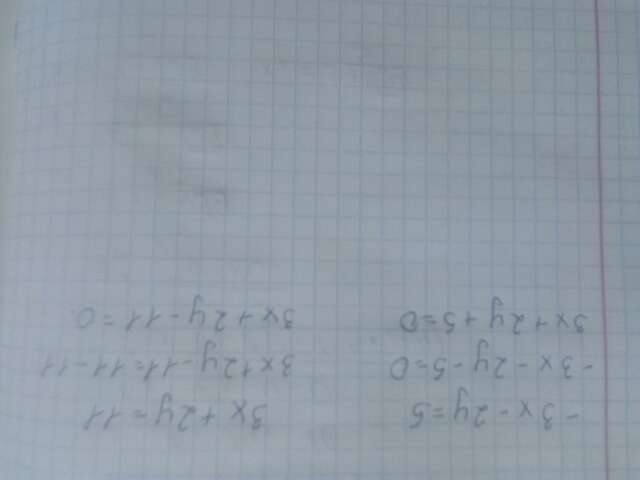 -3x-2y=5
-3x-2y-5=0
3x+2y+5=0
3x+2y=11
3x+2y-11=11-11
3x+2y-11=0